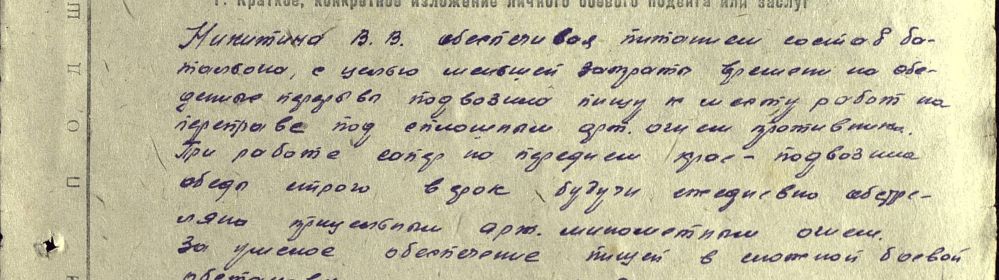 1. Краткое, конкретное изложение личного боевого подвига или заслуг
Никитина В. В. обеспечивая питанием состав ба-
тальона, с целью меньшей затраты времени на обе-
денные перерывы подвозила пищу к месту работ на
переправе под сплошным арт. огнем противника.
При работе сапер на переднем крае - подвозила
обеды строго в срок будучи ежедневно обстре-
ляна прицельным арт. минометным огнем.
За умелое обеспечение пищей в сложной боевой
П О Д П И Ш